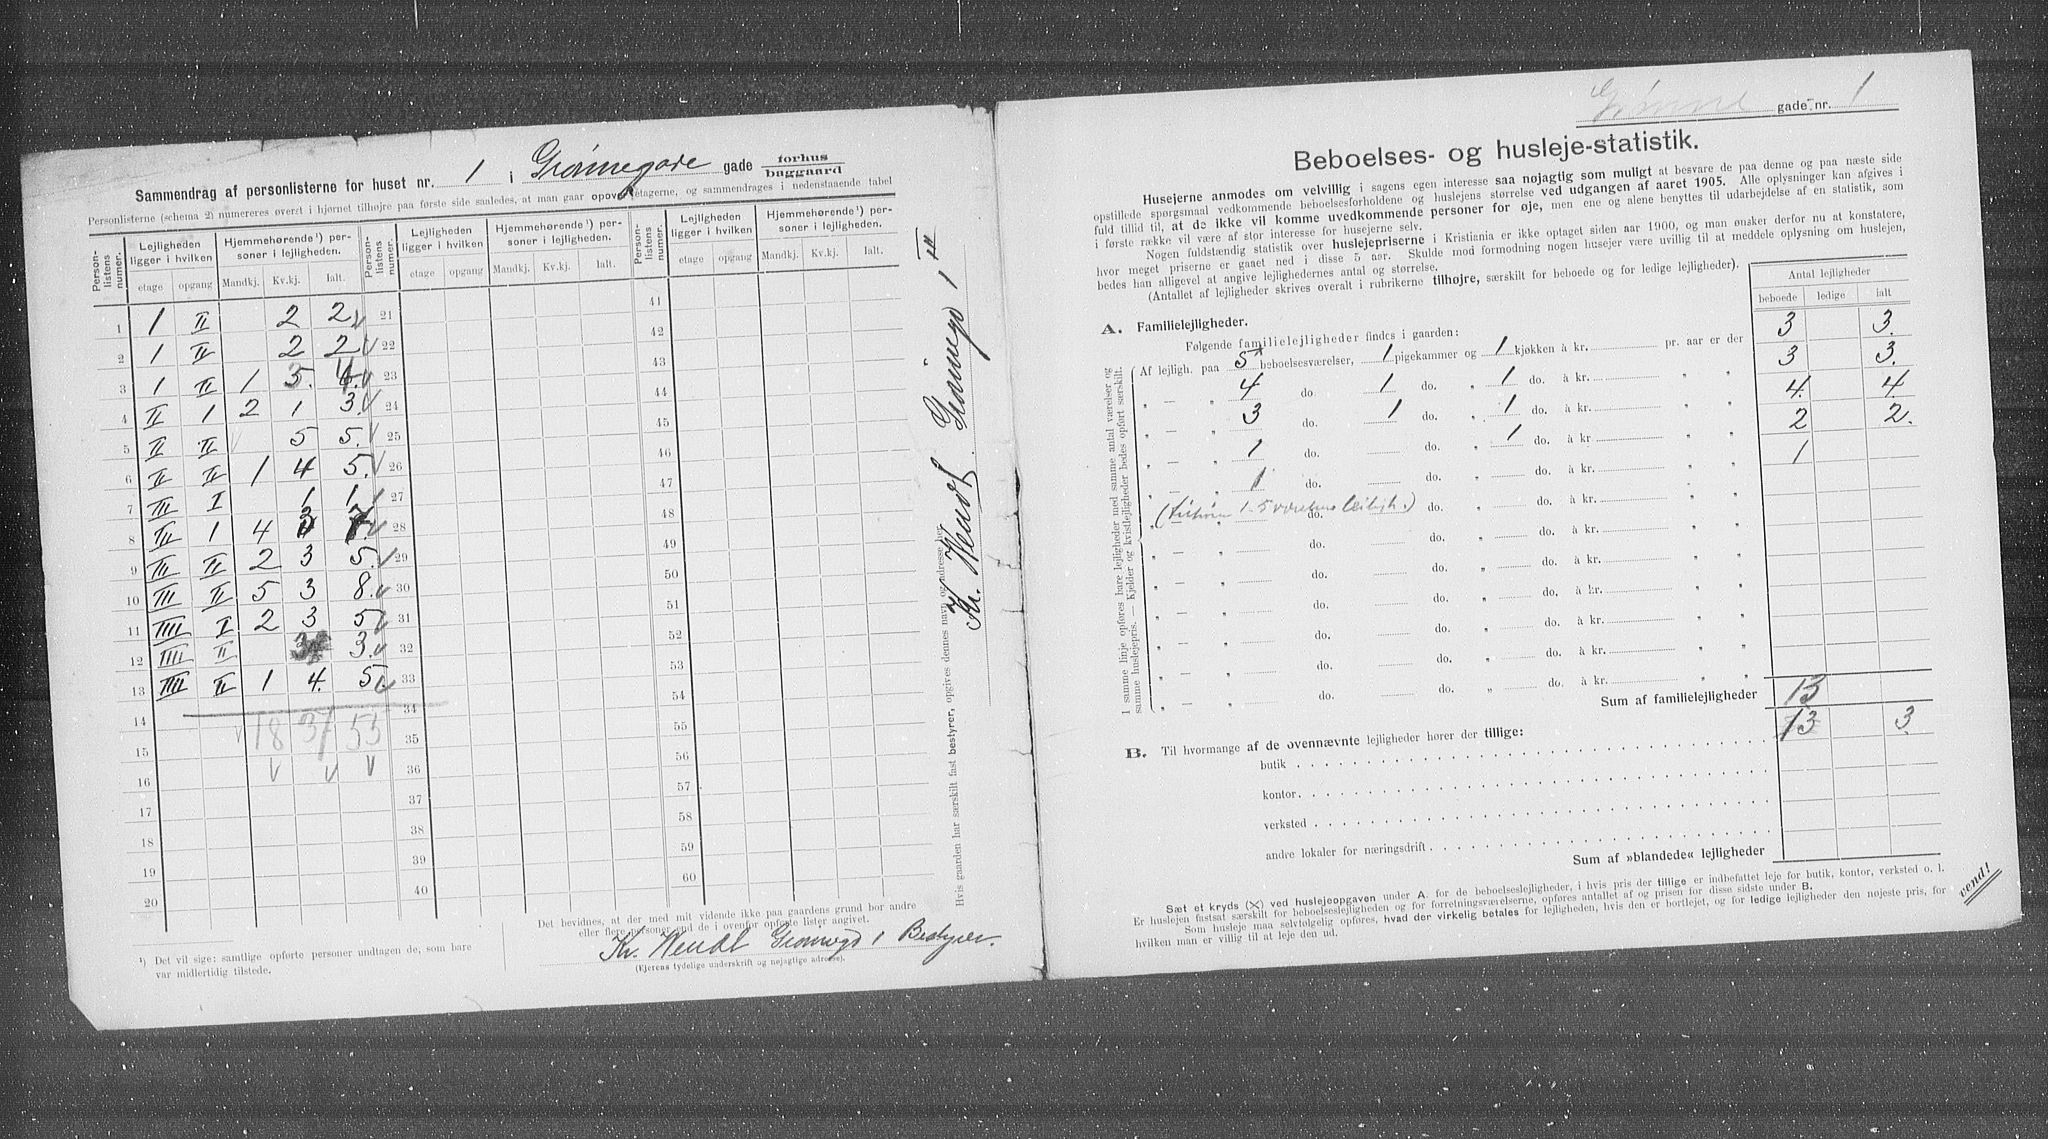 Sammendrag af personlisterne for huset nr. 1 i Grønnegade gade forhus baggaard
Personlisterne (schema 2) numereres øverst i hjørnet tilhøjre paa første side saaledes, at man gaar opover etagerne, og sammendrages i nedenstaaende tabel
Personlistens numer. Lejligheden ligger i hvilken Hjemmehørende¹) personer i lejligheden. Personlistens numer. Lejligheden ligger i hvilken Hjemmehørende¹) personer i lejligheden. Personlistens numer. Lejligheden ligger i hvilken Hjemmehørende¹) personer i lejligheden.
etage opgang Mandkj. Kv.kj. Ialt. etage opgang Mandkj. Kv.kj. Ialt. etage opgang Mandkj. Kv.kj. Ialt.
1 1 II 2 2 21 41
2 1 II 2 2 22 42
3 1 II 1 4. 23 43
4 II 1 2 1 3. 24 44
5 II II 5 5. 25 45
6 II II 1 4 5. 26 46
7 III I 1 1 27 47
8 III 1 4 3 7. 28 48
9 III II 2 3 5. 29 49
10 III II 5 3 8. 30 50
11 IIII I 2 3 5 31 51
12 IIII II 3 3. 32 52
13 IIII II 1 4. 5. 33 53
14 34 54
18 37 55
15 35 55
16 36 56
17 37 57
18 38 58
19 39 59
20 40 60
¹) Det vil sige: samtlige opførte personer undtagen de, som bare
var midlertidig tilstede.
Det bevidnes, at der med mit vidende ikke paa gaardens grund bor andre
eller flere personer end de i ovenfor opførte lister angivet.
Kr. Wendt Grønnegd 1 Bestyrer.
(Ejerens tydelige underskrift og nøjagtige adresse).
Hvis gaarden har særskilt fast bestyrer, opgives dennes navn og adresse her
Kr. Wendt. Grønnegd 1 III
Grønne gade nr. 1
Beboelses- og husleje-statistik.
Husejerne anmodes om velvillig i sagens egen interesse saa nøjagtig som muligt at besvare de paa denne og paa næste side
opstillede spørgsmaal vedkommende beboelsesforholdene og huslejens størrelse ved udgangen af aaret 1905. Alle oplysninger kan afgives i
fuld tillid til, at de ikke vil komme uvedkommende personer for øje, men ene og alene benyttes til udarbejdelse af en statistik, som
i første række vil være af stor interesse for husejerne selv.
Nogen fuldstændig statistik over huslejepriserne i Kristiania er ikke optaget siden aar 1900, og man ønsker derfor nu at konstatere,
hvor meget priserne er gaaet ned i disse 5 aar. Skulde mod formodning nogen husejer være uvillig til at meddele oplysning om huslejen,
bedes han alligevel at angive lejlighedernes antal og størrelse.
(Antallet af lejligheder skrives overalt i rubrikerne tilhøjre, særskilt for beboede og for ledige lejligheder).
Antal lejligheder
beboede ledige ialt
A. Familielejligheder.
Følgende familielejligheder findes i gaarden:
Af lejligh. paa 5 beboelsesværelser, 1 pigekammer og 1 kjøkken à kr. pr. aar er der 3 3.
" — " 4 do. 1 do. " 1 do. à kr. " " 3 3.
" — " 3 do. 1 do. " 1 do. à kr. " " 4. 4.
" — " 1 do. do. " 1 do. à kr. " " 2 2.
" — " 1 do. do. " do. à kr. " " 1
" — " do. do. " do. à kr. " "
" — " do. do. " do. à kr. " "
" — " do. do. " do. à kr. " "
" — " do. do. " do. à kr. " "
" — " do. do. " do. à kr. " "
" — " do. do. " do. à kr. " "
" — " do. do. " do. à kr. " "
I samme linje opføres bare lejligheder med samme antal værelser og
samme huslejepris. — Kjelder og kvistlejligheder bedes opført særskilt.
Sum af familielejligheder 13
13 3.
B. Til hvormange af de ovennævnte lejligheder hører der tillige:
butik
kontor
verksted
andre lokaler for næringsdrift
Sum af »blandede« lejligheder
Sæt et kryds (×) ved huslejeopgaven under A. for de beboelseslejligheder, i hvis pris der tillige er indbefattet leje for butik, kontor, verksted o. l.
Er huslejen fastsat særskilt for beboelseslejligheden og for forretningsværelserne, opføres antallet af og prisen for disse sidste under B.
Som husleje maa selvfølgelig opføres, hvad der virkelig betales for lejligheden, hvis den er bortlejet, og for ledige lejligheder den nøjeste pris, for
hvilken man er villig til at leje den ud.
vend!